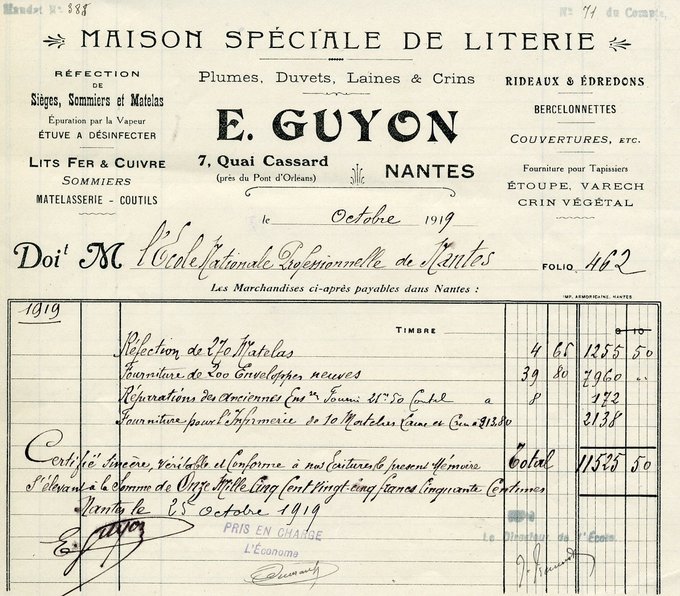 Mandat N° 388
N° 71 du Compte
MAISON SPÉCIALE DE LITERIE
RÉFECTION
DE
Sièges, Sommiers et Matelas
Épuration par la Vapeur
ÉTUVE A DÉSINFECTER
LITS FER & CUIVRE
SOMMIERS
MATELASSERIE - COUTILS
Plumes, Duvets, Laines & Crins
E. GUYON
7, Quai Cassard
(près du Pont d'Orléans)
NANTES
RIDEAUX & ÉDREDONS
BERCELONNETTES
COUVERTURES, ETC.
Fourniture pour Tapissiers
ÉTOUPE, VARECH
CRIN VÉGÉTAL
le Octobre 1919
Doit M l'École Nationale Professionnelle de Nantes FOLIO 462
Les Marchandises ci-après payables dans Nantes :
IMP. ARMORICAINE, NANTES
1919
TIMBRE 0 10
Réfection de 270 Matelas 4 65 1255 50
Fourniture de 200 Enveloppes neuves 39 80 7960 "
Réparations des anciennes Fourni 21m50 Coutil a 8 172
Fourniture pour l'Infirmerie de 10 Matelas Laine et Crin a 213.80 2138
Total 11525 50
Certifié Sincère, Véritable et Conforme à nos Ecritures le present Mémoire
S'élevant à la Somme de Onze Mille Cinq Cent Vingt-cinq francs Cinquante Centimes
Nantes le 25 octobre 1919
E. Guyon
PRIS EN CHARGE
L'Économe
Le Directeur de l'École